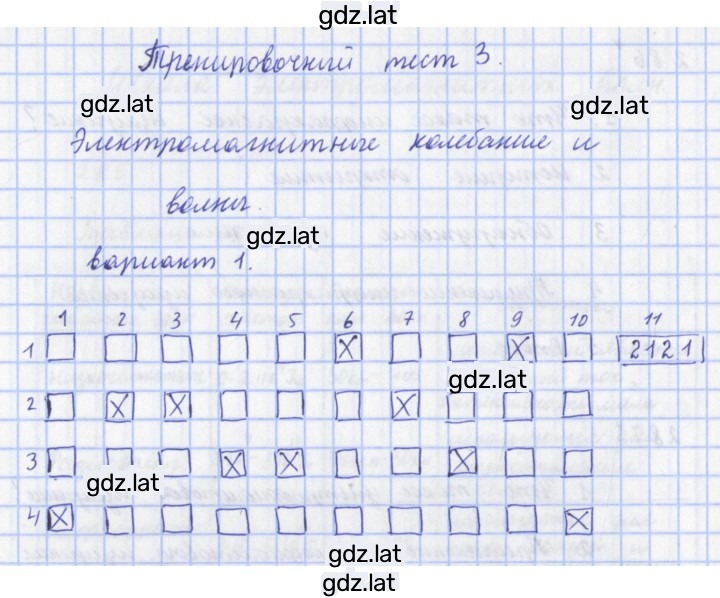 gdz.lat
Тренировочный тест 3.
gdz.lat
gdz.lat
Электромагнитные колебание и
волны.
gdz.lat
вариант 1.
1 2 3 4 5 6 7 8 9 10 11
1 X X 2121
gdz.lat
2 X X X
3 X X X
gdz.lat
4 X X
gdz.lat
gdz.lat